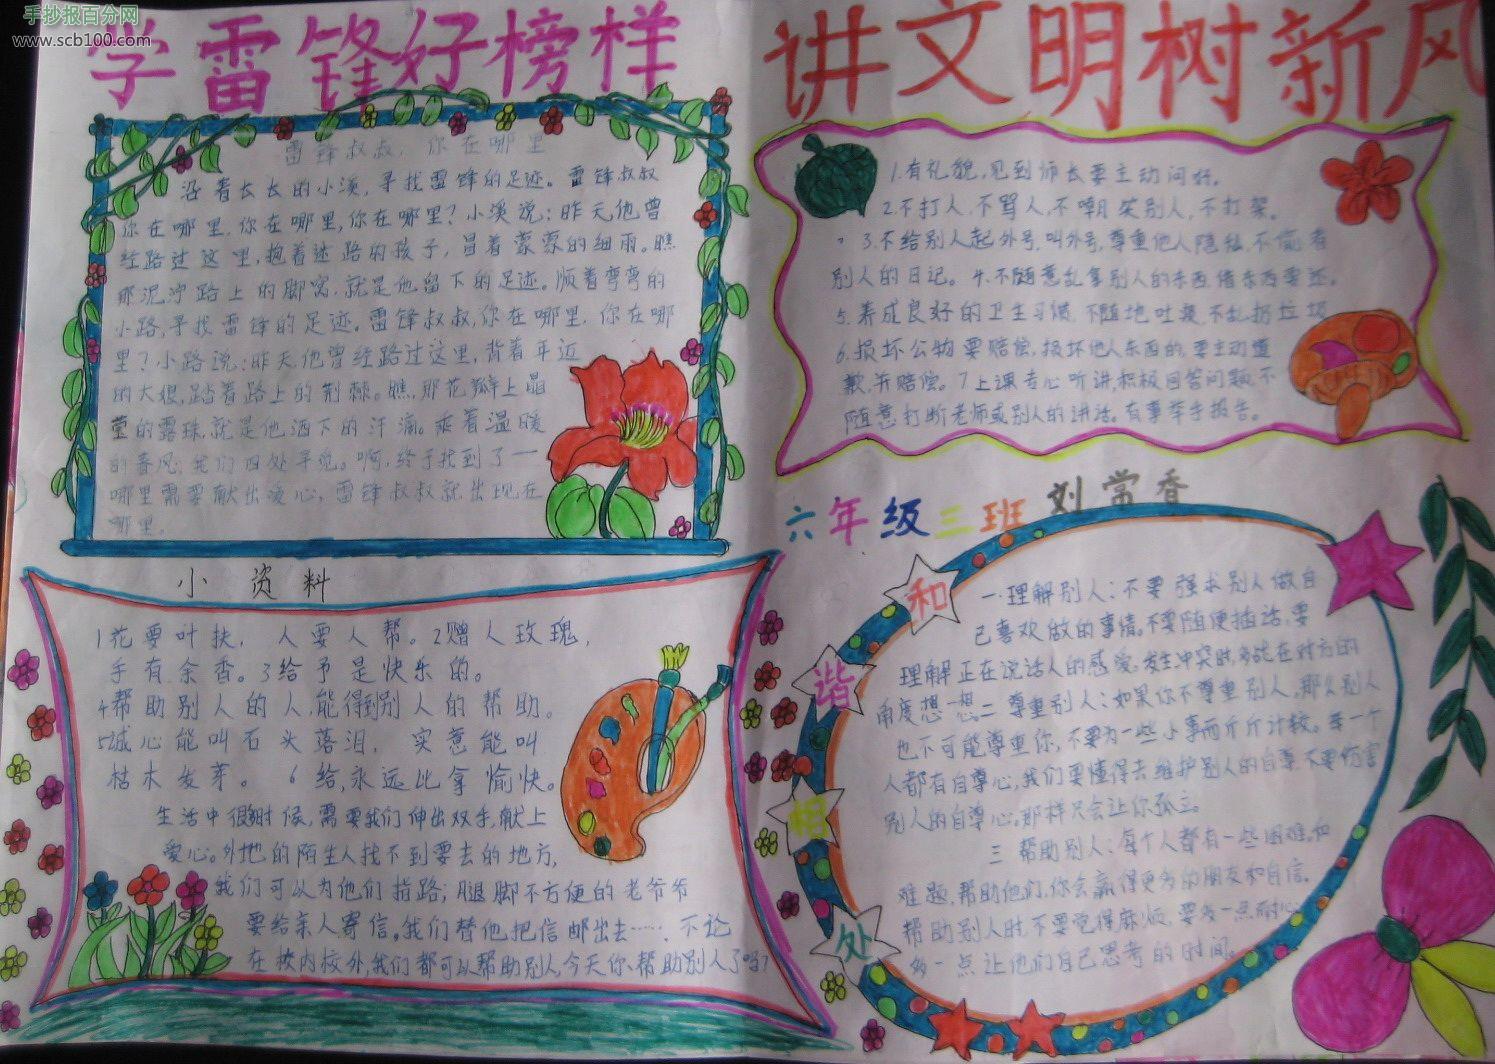 手抄报百分网
www.scb100.com
学雷锋好榜样
雷锋叔叔，你在哪里
沿着长长的小溪，寻找雷锋的足迹。雷锋叔叔
你在哪里，你在哪里，你在哪里？小溪说：昨天，他曾
经路过这里，抱着迷路的孩子，冒着蒙蒙的细雨。瞧
那泥泞路上的脚窝，就是他留下的足迹。顺着弯弯的
小路，寻找雷锋的足迹。雷锋叔叔，你在哪里，你在哪
里？小路说：昨天，他曾经路过这里，背着年迈
的大娘，踏着路上的荆棘。瞧，那花瓣上晶
莹的露珠，就是他洒下的汗滴。乘着温暖
的春风，我们四处寻觅。啊，终于找到了—
哪里需要献出爱心，雷锋叔叔就出现在
哪里。
小资料
1花要叶扶，人要人帮。2赠人玫瑰，
手有余香。3给予是快乐的。
4帮助别人的人，能得到别人的帮助。
5诚心能叫石头落泪，实意能叫
枯木发芽。6给，永远比拿愉快。
生活中很多时候，需要我们伸出双手，献上
爱心。外地的陌生人找不到要去的地方，
我们可以为他们指路；腿脚不方便的老爷爷
要给亲人寄信，我们替他把信邮出去……，不论
在校内校外，我们都可以帮助别人，今天你帮助别人了吗？
讲文明树新风
1.有礼貌，见到师长要主动问好。
2.不打人，不骂人，不嘲笑别人，不打架。
3.不给别人起外号，叫外号，尊重他人隐私，不偷看
别人的日记。4.不随意乱拿别人的东西，借东西要还。
5.养成良好的卫生习惯，不随地吐痰，不乱扔垃圾
6.损坏公物要赔偿，损坏他人东西的，要主动道
歉，并赔偿。7上课专心听讲，积极回答问题，不
随意打断老师或别人的讲话。有事举手报告。
六年级三班 刘常香
和谐相处
一.理解别人：不要强求别人做自
己喜欢做的事情。不要随便插话，要
理解正在说话人的感受。发生冲突时，多站在对方的
角度想一想。二 尊重别人：如果你不尊重别人，那么别人
也不可能尊重你，不要为一些小事而斤斤计较。每一个
人都有自尊心，我们要懂得去维护别人的自尊，不要伤害
别人的自尊心。那样只会让你孤立。
三 帮助别人：每个人都有一些困难，和
难题，帮助他们，你会赢得更多的朋友和自信。
帮助别人时，不要觉得麻烦，要多一点耐心，
多一点让他们自己思考的时间。